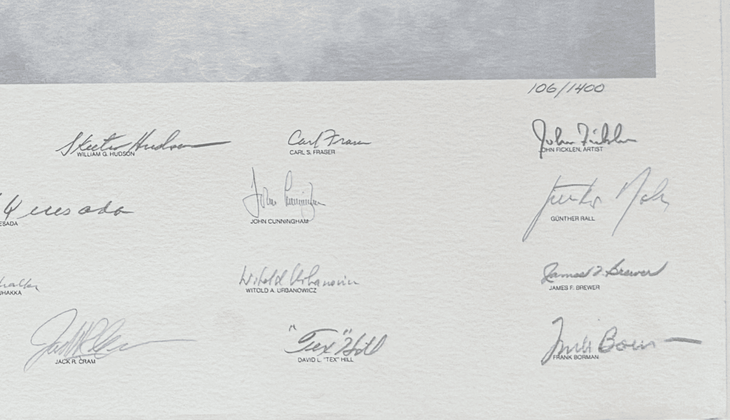 106/1400
Skeeter Hudson Carl Fraser John Ficklen
WILLIAM G. HUDSON CARL S. FRASER JOHN FICKLEN, ARTIST
Quesada John Cunningham Günther Rall
ESADA JOHN CUNNINGHAM GÜNTHER RALL
Witold Urbanowicz James F Brewer
SHAKKA WITOLD A. URBANOWICZ JAMES F. BREWER
"Tex" Hill Frank Borman
JACK R. CRAM DAVID L. "TEX" HILL FRANK BORMAN